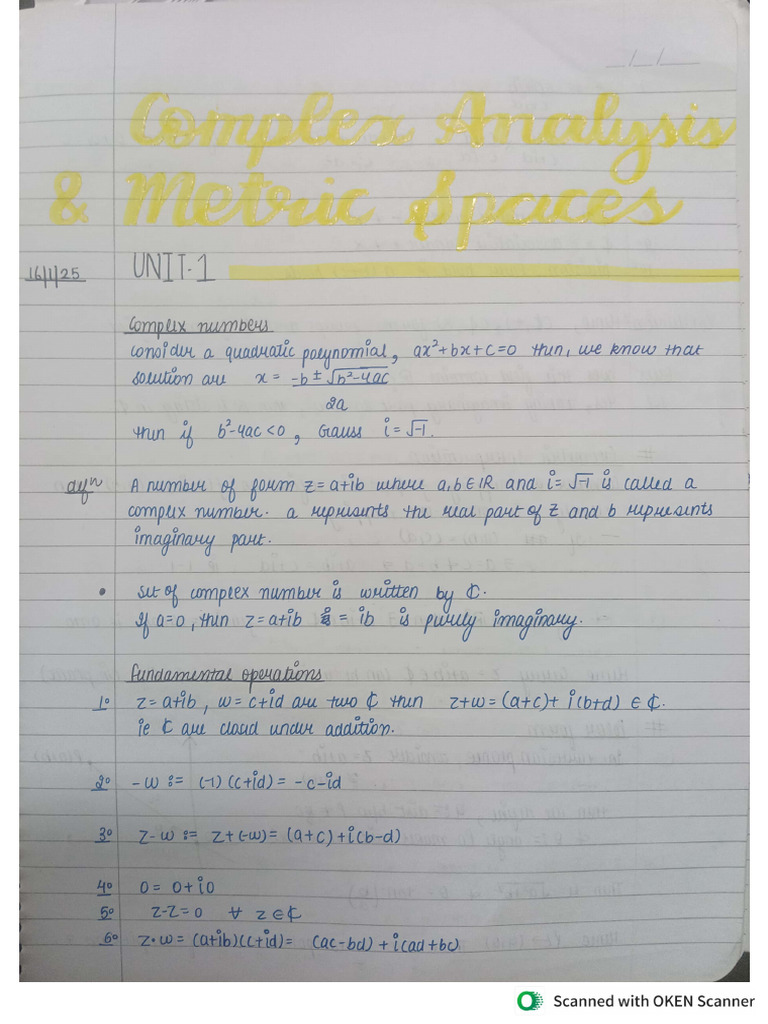 _/_/_
Complex Analysis
& Metric Spaces
16/1/25 UNIT-1
Complex numbers
Consider a quadratic polynomial, ax²+bx+c=0 then, we know that
solution are x = -b ± √b²-4ac
2a
then if b²-4ac<0, Gauss i=√-1.
defⁿ A number of form z=a+ib where a,b∈IR and i=√-1 is called a
complex number. a represents the real part of z and b represents
imaginary part.
• Set of complex number is written by ℂ.
If a=0, then z=a+ib = ib is purely imaginary.
Fundamental operations
1° z=a+ib, w=c+id are two ℂ then z+w=(a+c)+i(b+d) ∈ ℂ.
ie ℂ are closed under addition.
2° -w := (-1)(c+id) = -c-id
3° z-w := z+(-w)=(a+c)+i(b-d)
4° 0 = 0+i0
5° z-z=0 ∀ z∈ℂ
6° z·w = (a+ib)(c+id)= (ac-bd)+i(ad+bc)
Scanned with OKEN Scanner